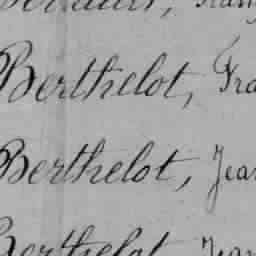 Berthelot, Fra
Berthelot, Jea
Berthelot, Jean